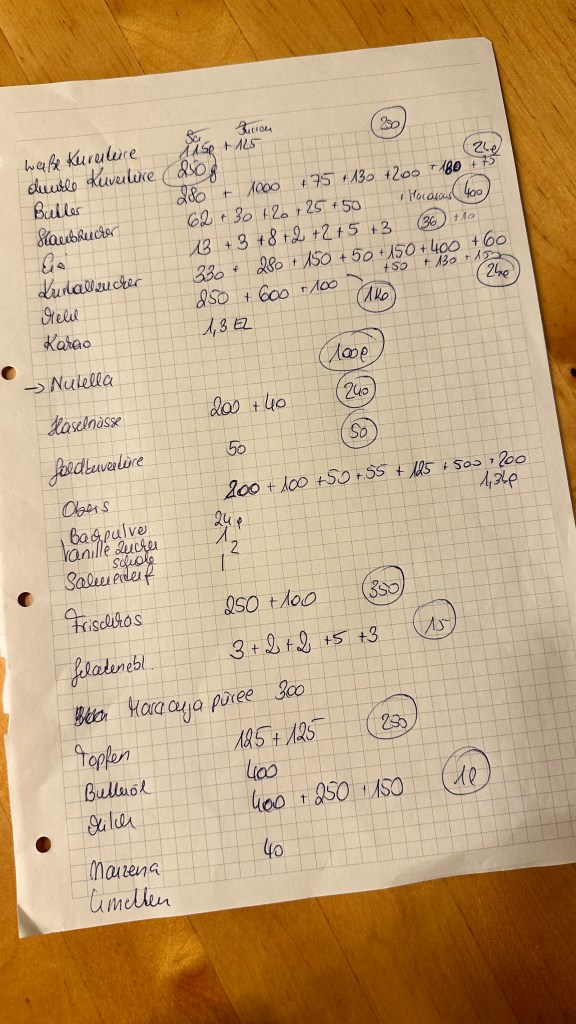 weiße Kuvertüre 115g + 125 250
dunkle Kuvertüre 250g 2kg
Butter 280 + 1000 + 75 + 130 + 200 + 180 + 75
Staubzucker 62 + 30 + 20 + 25 + 50 + Macarons 400
Eier 13 + 3 + 8 + 2 + 2 + 5 + 3 36 + 10
Kristallzucker 330 + 280 + 150 + 50 + 150 + 400 + 60
+ 50 + 130 + 150
Mehl 250 + 600 + 100 1kg
Kakao 1,3 EL
→ Nutella 100g
Haselnüsse 200 + 40 240
Goldkuvertüre 50 50
Obers 200 + 100 + 50 + 55 + 125 + 500 + 200
Backpulver 24g
Vanillezucker 1
schote 2
Frischkäs 250 + 100 350
Gelatinebl. 3 + 2 + 2 + 5 + 3 15
Maracuja püree 300
Topfen 125 + 125 250
Butteröl 400
Milch 400 + 250 + 150 1l
Maizena 40
Limetten